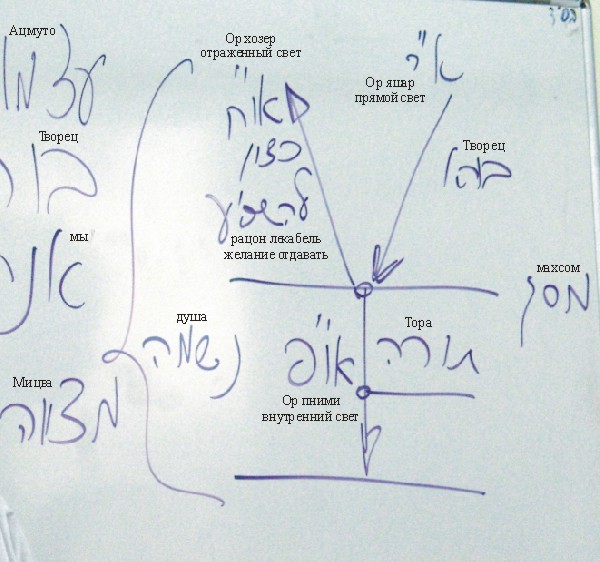 Ацмуто
עצמו
Творец
בו
мы
אני
Мицва
מצווה
душа
נשמה
Ор хозер
отраженный свет
או"ח
רצון
להשפיע
рацон лекабель
желание отдавать
א"י
Ор яшар
прямой свет
Творец
махсом
מסך
Тора
תורה
או"פ
Ор пними
внутренний свет